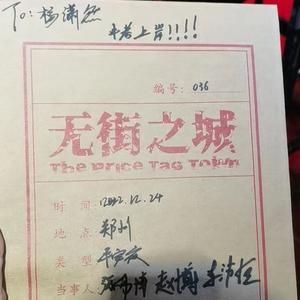 To: 杨潇然
考上岸!!!!
编号: 036
无街之城
The Price Tag Town
时 间: 2022.12.24
地 点: 郑州
类 型
当事人 赵博